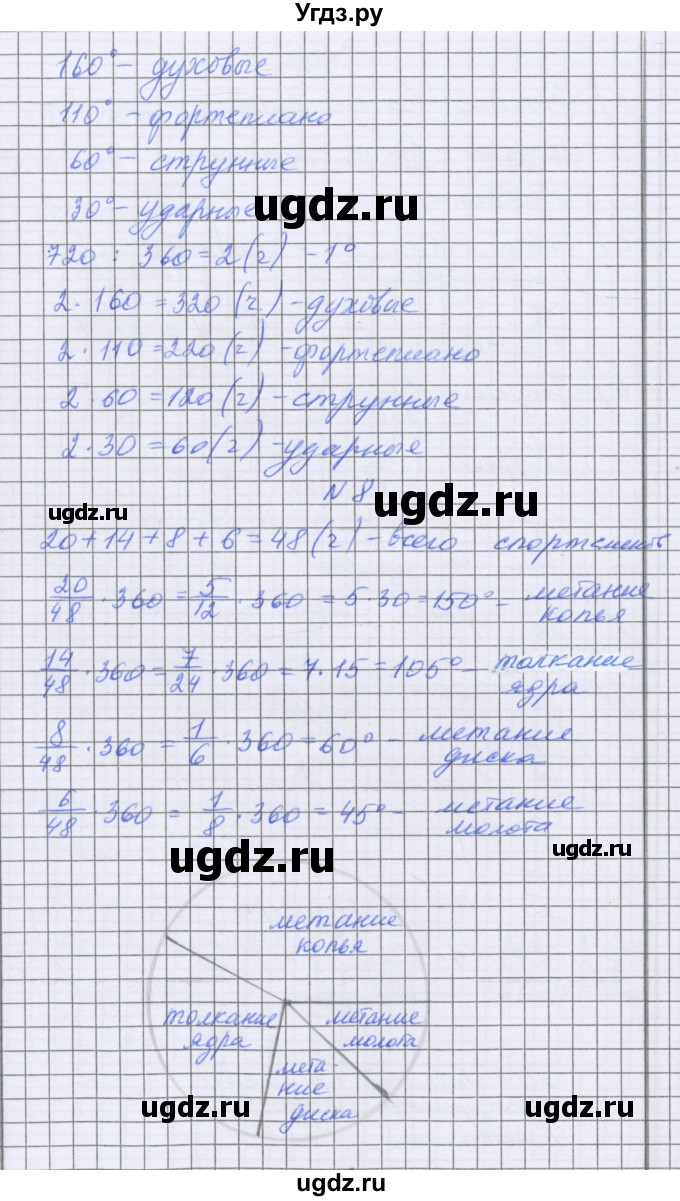 Угдз.ру
160° – духовые
110° – фортепиано
60° – струнные
30° – ударные
ugdz.ru
720 : 360 = 2 (ч) – 1°
2 · 160 = 320 (ч) – духовые
2 · 110 = 220 (ч) – фортепиано
2 · 60 = 120 (ч) – струнные
2 · 30 = 60 (ч) – ударные
N 8
ugdz.ru
ugdz.ru
ugdz.ru
20 + 14 + 8 + 6 = 48 (ч) – всего спортсменов
20/48 · 360 = 5/12 · 360 = 5 · 30 = 150° – метание
копья
14/48 · 360 = 7/24 · 360 = 7 · 15 = 105° – толкание
ядра
8/48 · 360 = 1/6 · 360 = 60° – метание
диска
6/48 · 360 = 1/8 · 360 = 45° – метание
молота
ugdz.ru
ugdz.ru
метание
копья
толкание
ядра
метание
молота
мета-
ние
диска
ugdz.ru
ugdz.ru
ugdz.ru